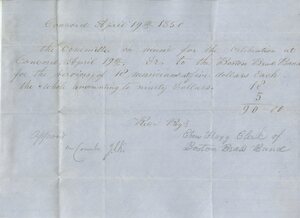 Concord April 19th 1850
the Committee on music for the Celebration at
Concord April 19th, Dr. to the Boston Brass Band
for the services of 18 musicians at five dollars Each
the whole amounting to ninety Dollars
18
5
90 00
Recd Pay't
Eben Flagg Clerk of
Boston Brass Band